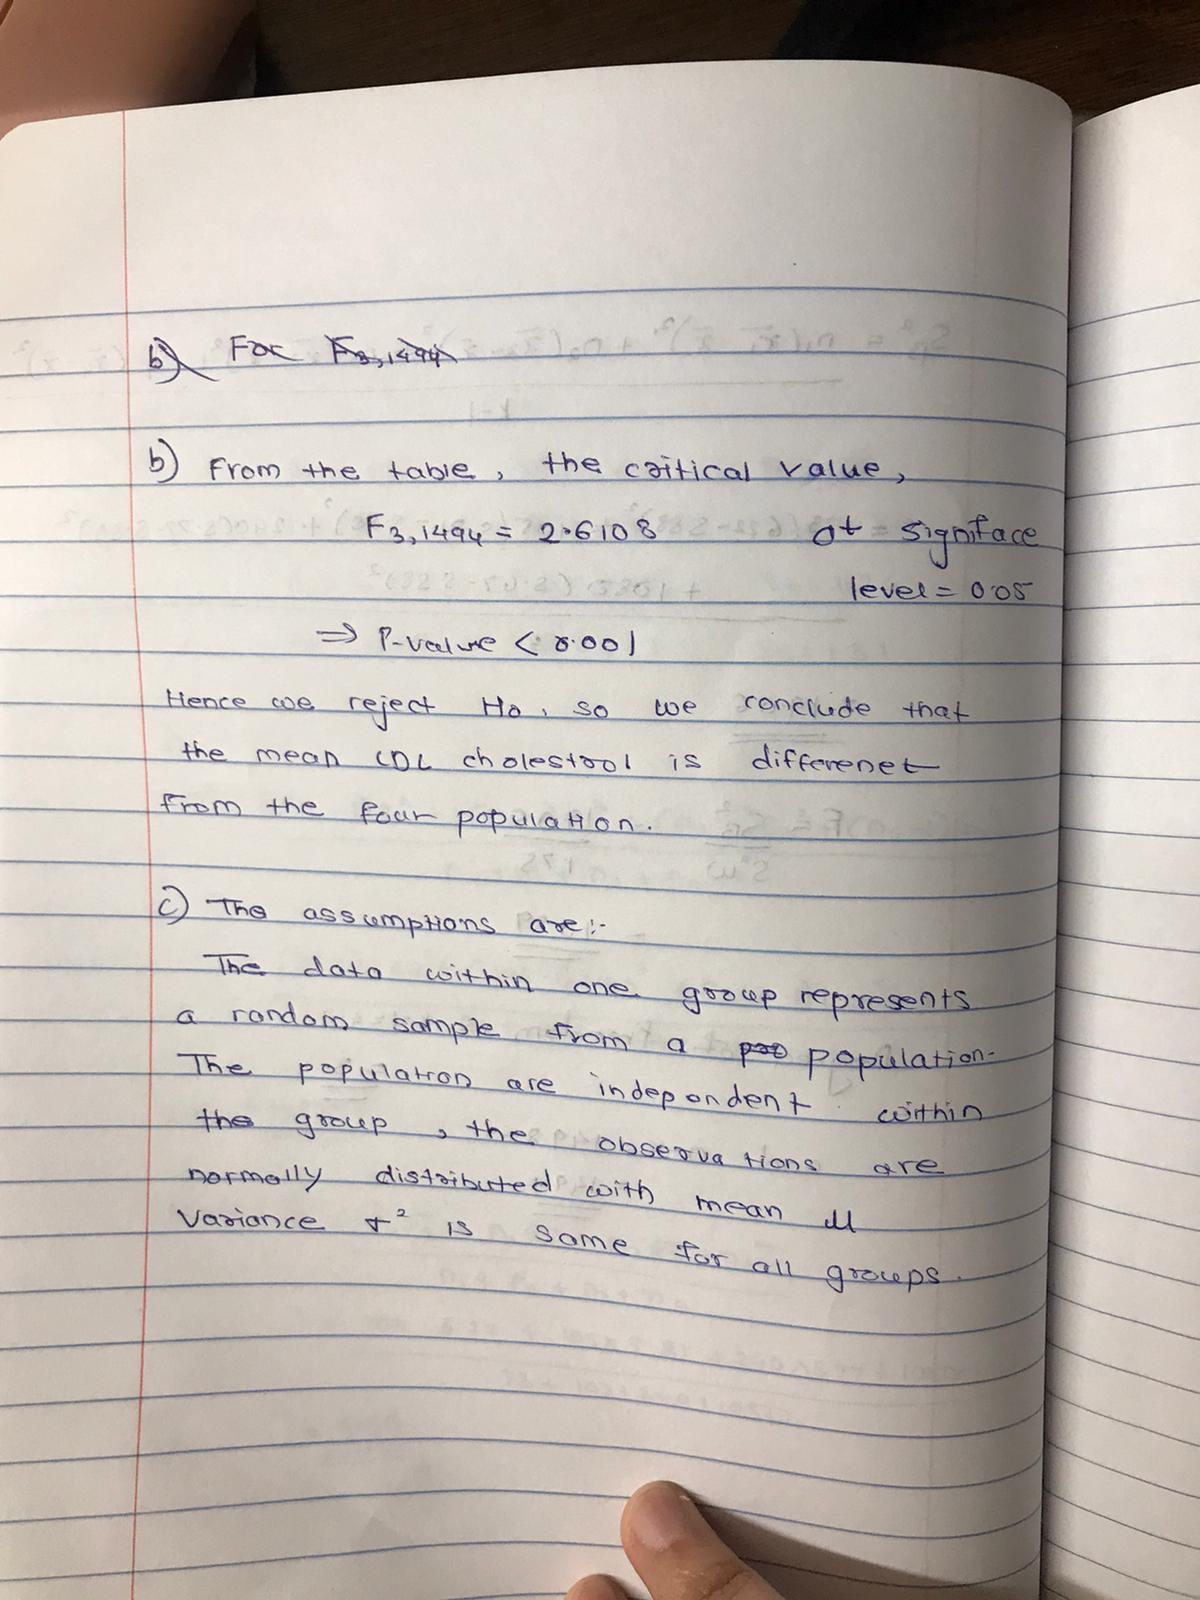 b) For F3,1494
b) From the table, the critical value,
F3,1494 = 2.6108 at signiface
level = 0.05
⇒ P-value < 0.001
Hence we reject Ho, so we conclude that
the mean LDL cholestrol is differenet
from the four population.
c) The assumptions are:-
The data within one group represents
a random sample from a population.
The population are independent within
the group, the observations are
normally distributed with mean μ
variance σ² is same for all groups.